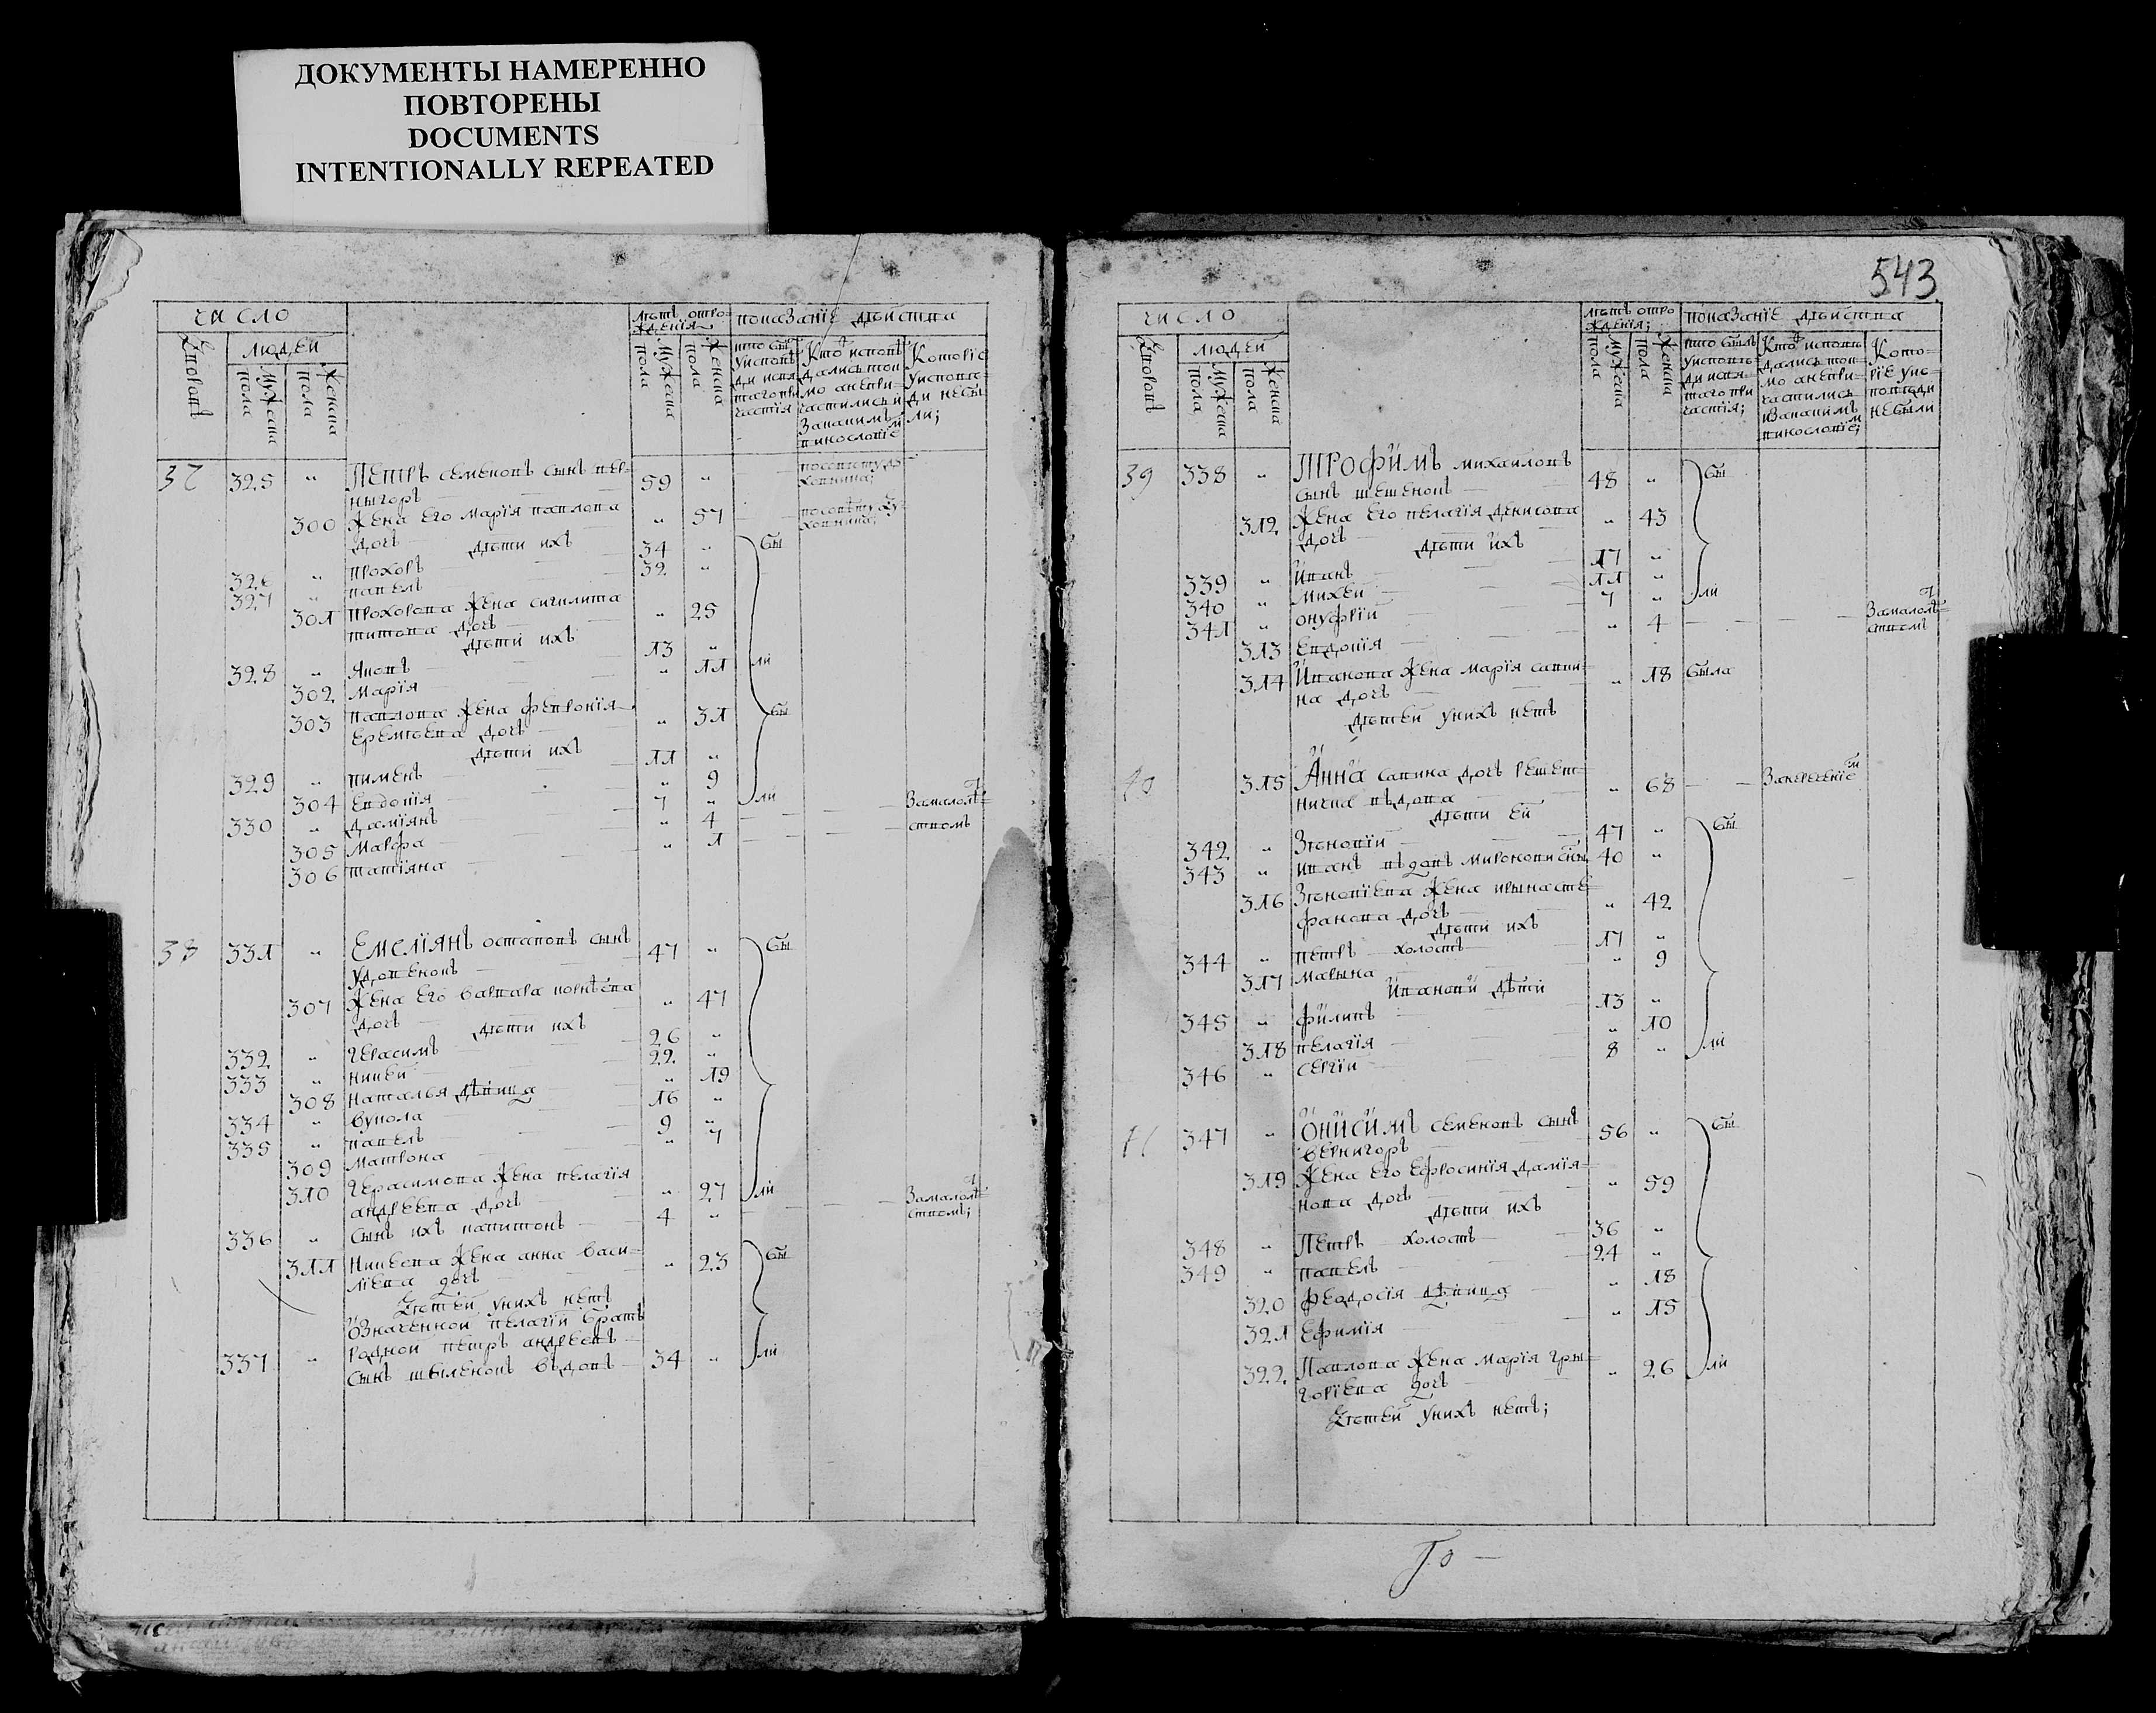 ДОКУМЕНТЫ НАМЕРЕННО
ПОВТОРЕНЫ
DOCUMENTS
INTENTIONALLY REPEATED
число
лѣтъ отро-
ждения
показаніе дѣиства
Дворовъ
людей
Мужеска пола
Женска пола
Мужеска пола
Женска пола
кто былъ
у исповѣ
ди исвя
таго при
частія
Кто исповѣ
дались ток
мо а непри
частились и
За какимъ
винословіе
м
Которіе
у испове-
ди небы
ли;
37 325 „ ПЕТРЪ семеновъ сынъ вер- 59 „
ныгоръ
300 жена его марія павлова „ 57
дочь дѣти ихъ
326 „ прохоръ 34 „ бы
327 „ павелъ 32 „
301 прохорова жена сигклита „ 25
титова дочь
дѣти ихъ
328 „ яковъ 13 „
302 марія „ 11 ли
303 павлова жена февронія „ 31 бы
еремѣева дочь
дѣти ихъ
329 „ пименъ 11 „
304 евдокія „ 9
330 „ даміянъ 7 „ ли
305 мавра „ 4 За малолѣ
306 татіяна „ 1 ством
38 331 „ ЕМЕЛІЯНЪ остаповъ сынъ 47 „ бы
удовенокъ
307 жена его варвара корнѣева „ 47
дочь дѣти ихъ
332 „ герасимъ 26 „
333 „ никей 22 „
308 наталья дѣвица „ 19
334 „ вукола 16 „
335 „ павелъ 9 „
309 матрона „ 7
310 герасимова жена пелагія „ 27 ли
андреева дочь
336 „ сынъ ихъ капитонъ 4 „ За малолѣ
ством;
311 Никеева жена анна васи- „ 23 бы
лѣева дочь
дѣтей у нихъ нетъ
Означенной пелагіи братъ
родной петръ андреевъ
337 „ сынъ вдовъ 34 „ ли
543
число
лѣтъ отро
ждения;
показаніе дѣиства
Дворовъ
людей
Мужеска пола
Женска пола
Мужеска пола
Женска пола
кто былъ
у исповѣ-
ди исвя-
таго при
частія;
Кто исповѣ
дались ток
мо а непри-
частились
и за какимъ
винословіе;
м
Кото-
ріе у ис-
поведи
небыли
39 338 „ ТРОФИМЪ михаиловъ 48 „ бы
сынъ шешенокъ
312 жена его пелагія денисова „ 43
дочь дѣти ихъ
339 „ иванъ 17 „
340 „ михей 11 „
341 „ онуфрій 7 „ ли
313 евдокія „ 4 За малолѣ
ством
314 Иванова жена марія савви- „ 18 была
на дочь
дѣтей у нихъ нетъ
40 315 АННА савина дочь решет- „ 68
никка вдова
дѣти ей
342 „ Зѣновій 47 „ бы
343 „ иванъ вдовъ 40 „
316 Зѣновіева жена ирына сте „ 42
фанова дочь
дѣти ихъ
344 „ петръ холостъ 17 „
317 марына „ 9
Ивановы дѣти
345 „ филипъ 13 „
318 пелагія „ 10
346 „ сергій 8 „ ли
41 347 „ ОНИСИМЪ семеновъ сынъ 56 „ бы
вернигоръ
319 жена его ефросинія даміа- „ 59
нова дочь
дѣти ихъ
348 „ Петръ холостъ 36 „
349 „ павелъ 24 „
320 феодосія дѣвица „ 18
321 ефимія „ 15
322 Павлова жена марія гры- „ 26 ли
горіева дочь
дѣтей у нихъ нетъ;